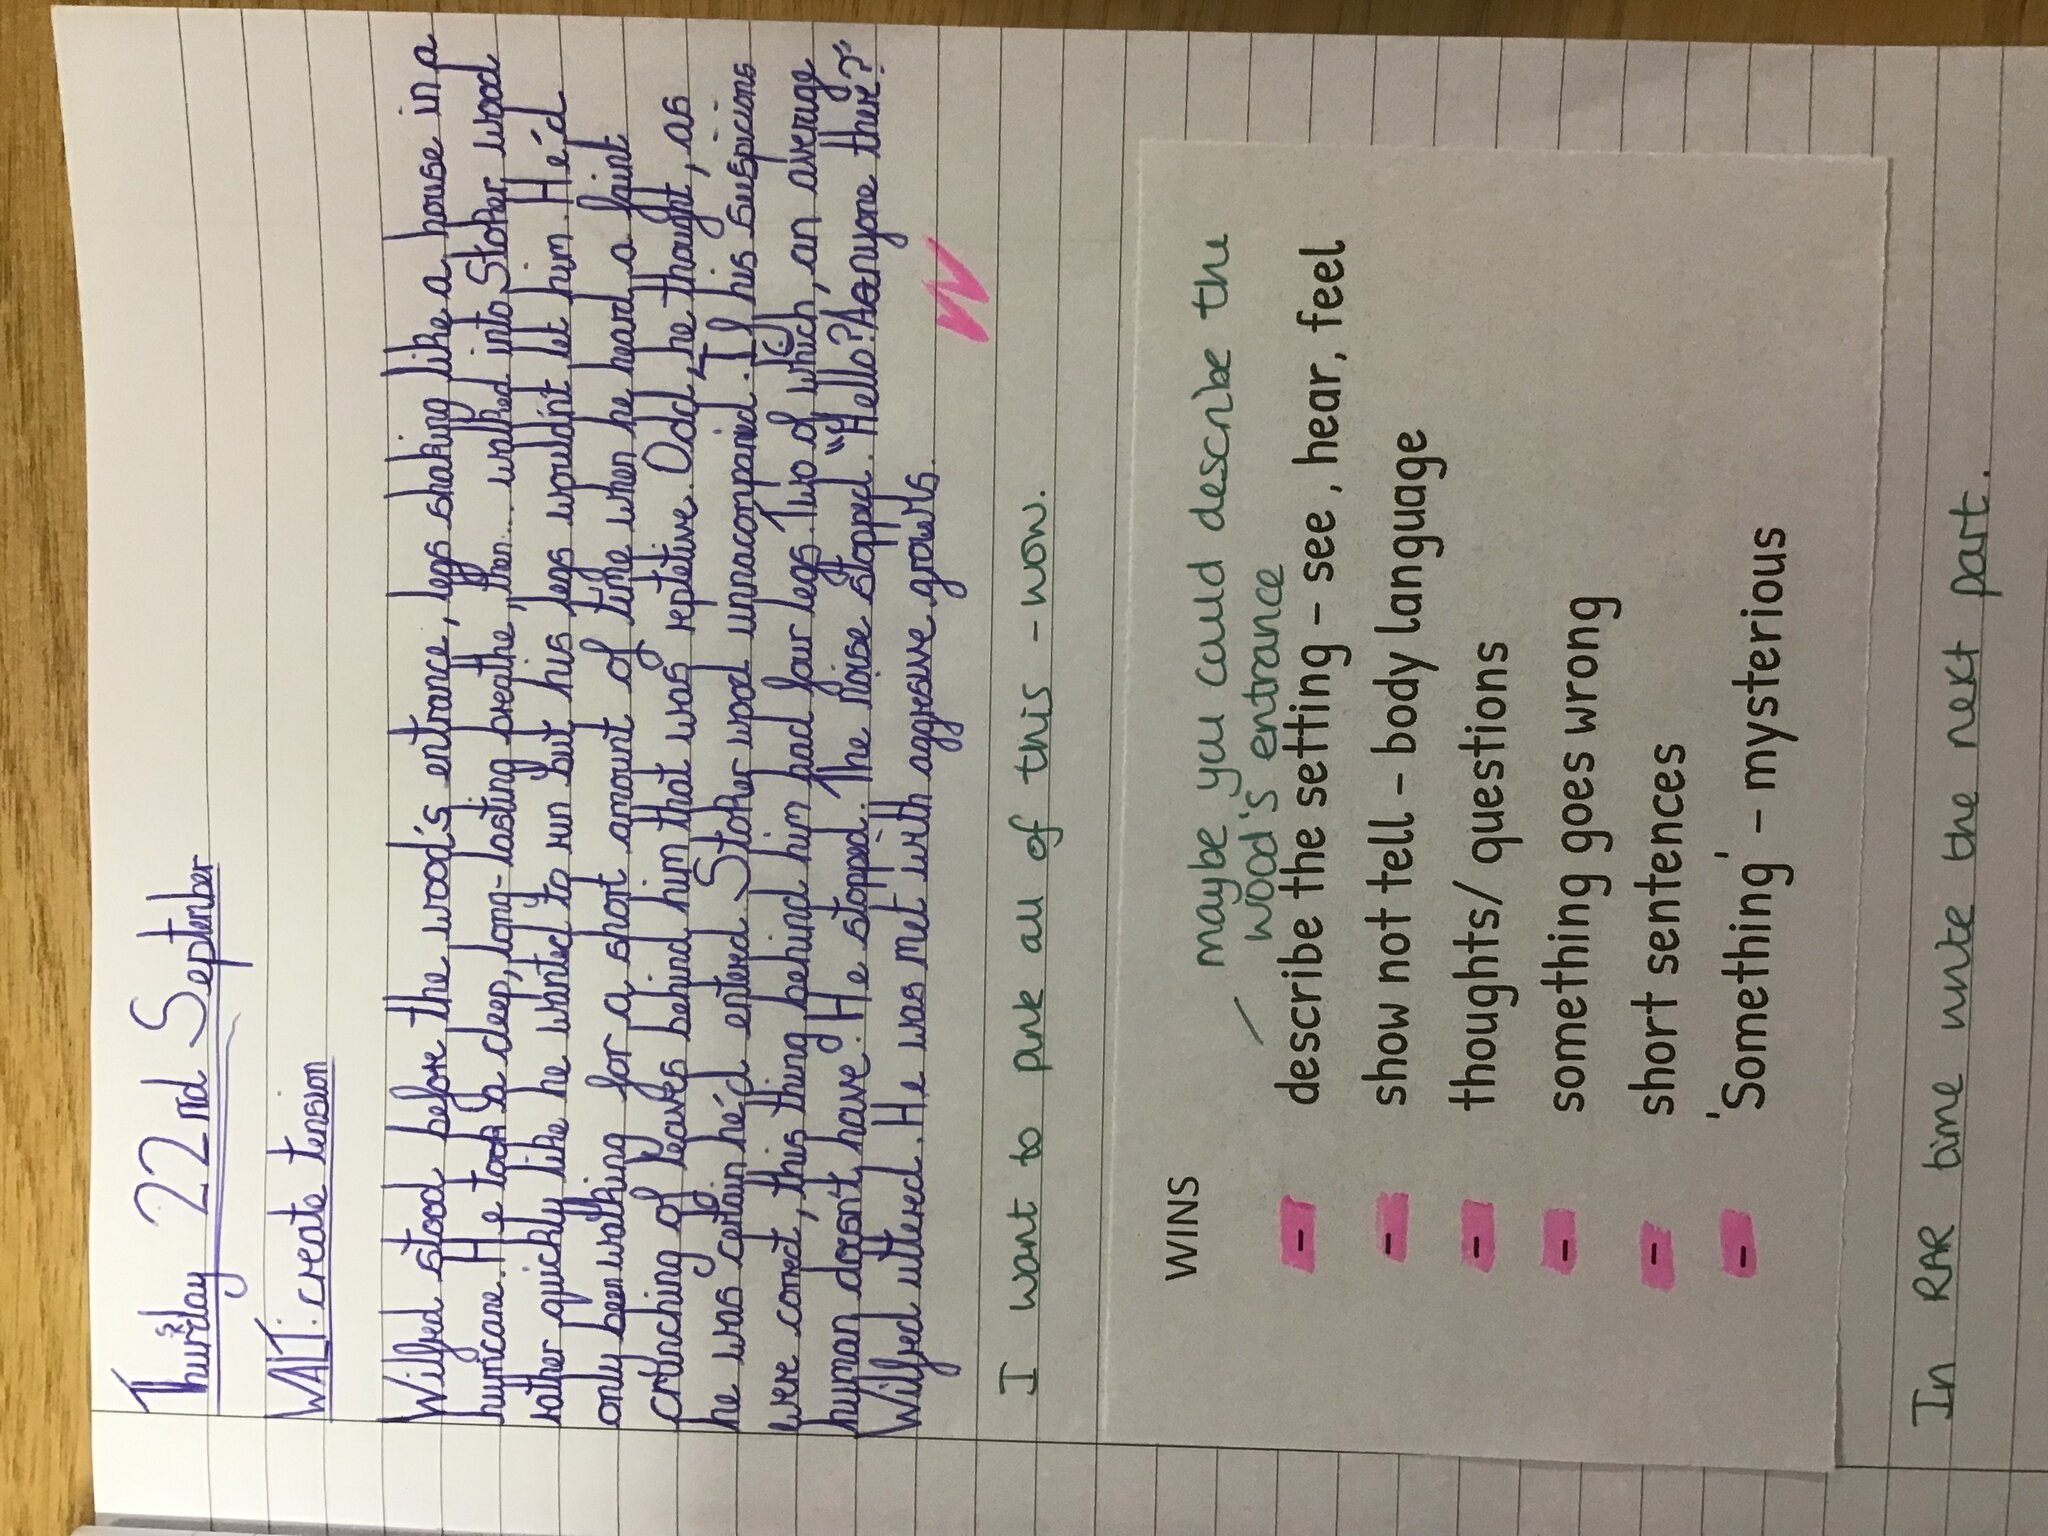 Thursday 22nd September
WALT: create tension
Wilfred stood before the wood's entrance, legs shaking like a house in a
hurricane. He took a deep, long-lasting breathe, then.... walked into Stoker wood
rather quickly like he wanted to run but his legs wouldn't let him. He'd
only been walking for a short amount of time when he heard a faint
crunching of leaves behind him that was reptetive. Odd, he thought, as
he was certain he'd entered Stoker wood unnacompanied. If his suspicions
were correct, this thing behind him had four legs. Two of which, an average
human doesn't have. He stopped. The noise stopped. "Hello? Anyone there?"
Wilfred uttered. He was met with aggresive growls.
I want to pink all of this - wow.
maybe you could describe the
wood's entrance
WINS
- describe the setting – see, hear, feel
- show not tell – body language
- thoughts/ questions
- something goes wrong
- short sentences
- 'Something' – mysterious
In RAR time write the next part.